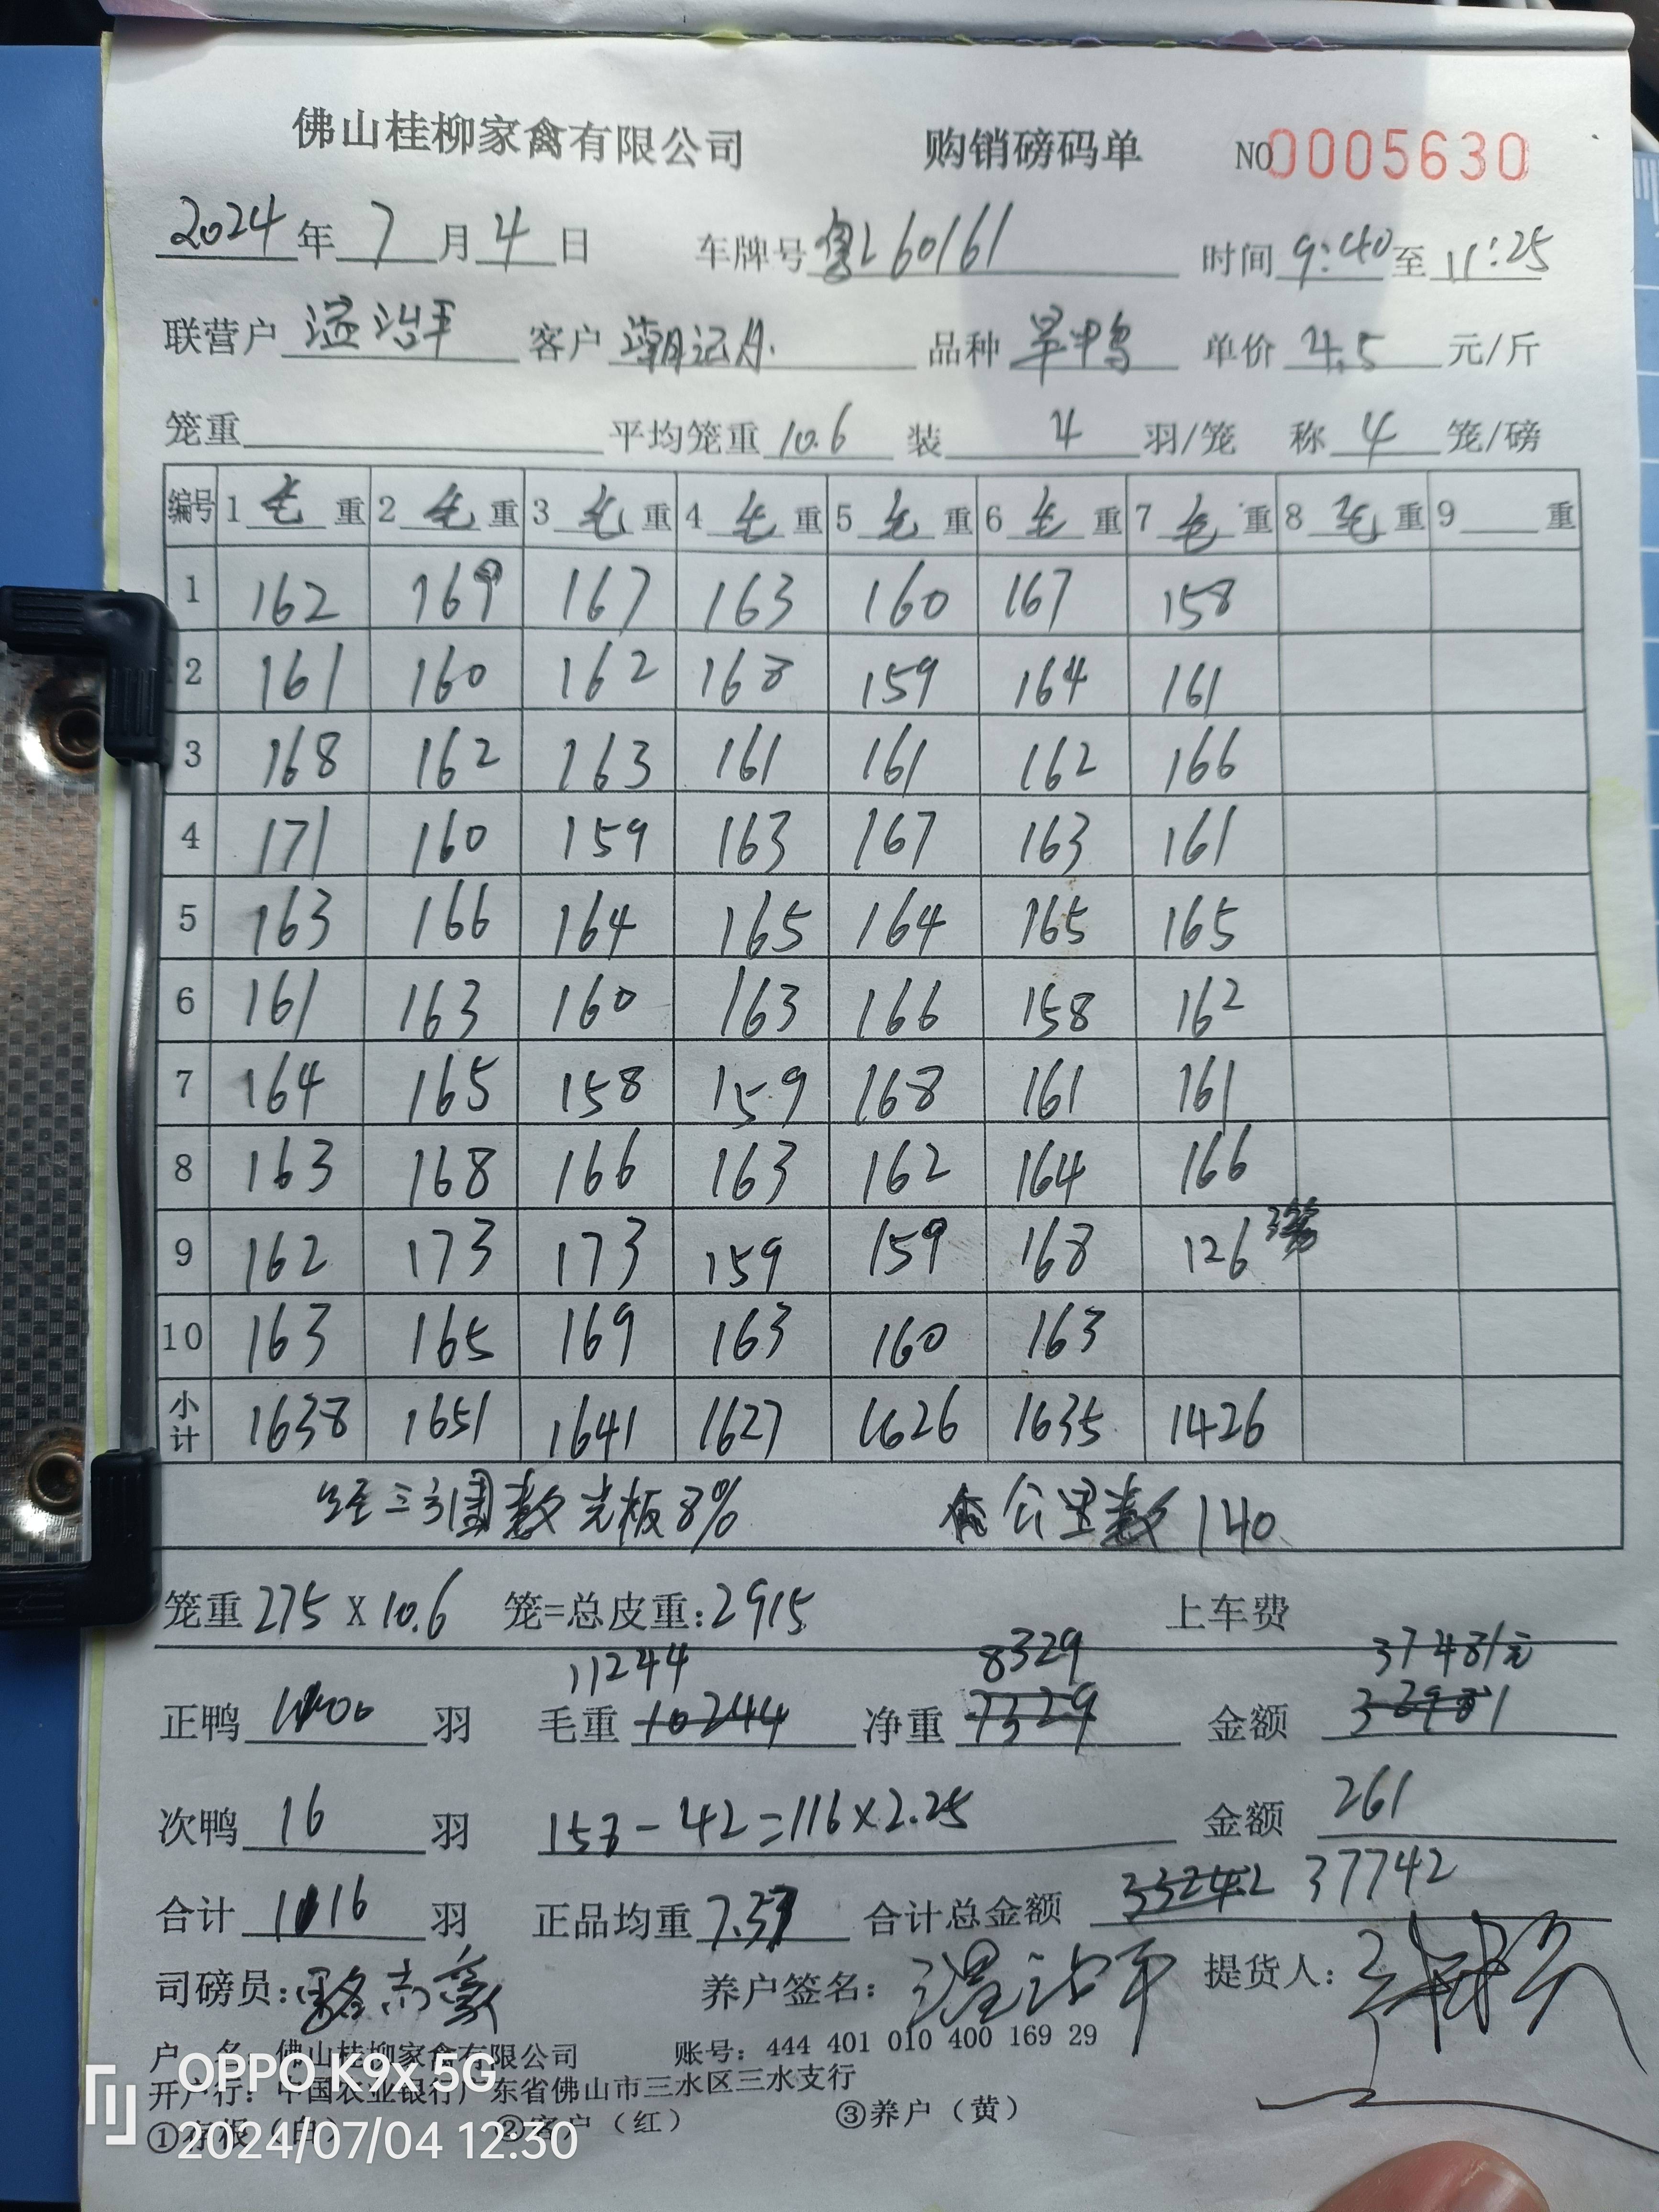 佛山桂柳家禽有限公司 购销磅码单 NO0005630
2024年7月4日 车牌号粤L60161 时间9:40至11:25
联营户 温治平 客户 潮记 品种 旱鸭 单价 4.5 元/斤
笼重 平均笼重10.6 装 4 羽/笼 称 4 笼/磅
编号 1毛重 2毛重 3毛重 4毛重 5毛重 6毛重 7毛重 8毛重 9 重
1 162 169 167 163 160 167 158
2 161 160 162 168 159 164 161
3 168 162 163 161 161 162 166
4 171 160 159 163 167 163 161
5 163 166 164 165 164 165 165
6 161 163 160 163 166 158 162
7 164 165 158 159 168 161 161
8 163 168 166 163 162 164 166
9 162 173 173 159 159 168 126 3笼
10 163 165 169 163 160 163
小计 1638 1651 1641 1627 1626 1635 1426
经三方围数光板8% 公里数140
笼重275X10.6 笼=总皮重:2915 上车费
11244 8329 37481元
正鸭 1100 羽 毛重 10244 净重 7329 金额 32981
次鸭 16 羽 158-42=116×2.25 金额 261
合计 1116 羽 正品均重7.57 合计总金额 33242 37742
司磅员:骆志豪 养户签名:温治平 提货人:
户 名 佛山桂柳家禽有限公司 账号:444 401 010 400 169 29
开户行:中国农业银行广东省佛山市三水区三水支行
①存根(白) ②客户(红) ③养户(黄)
OPPO K9x 5G
2024/07/04 12:30